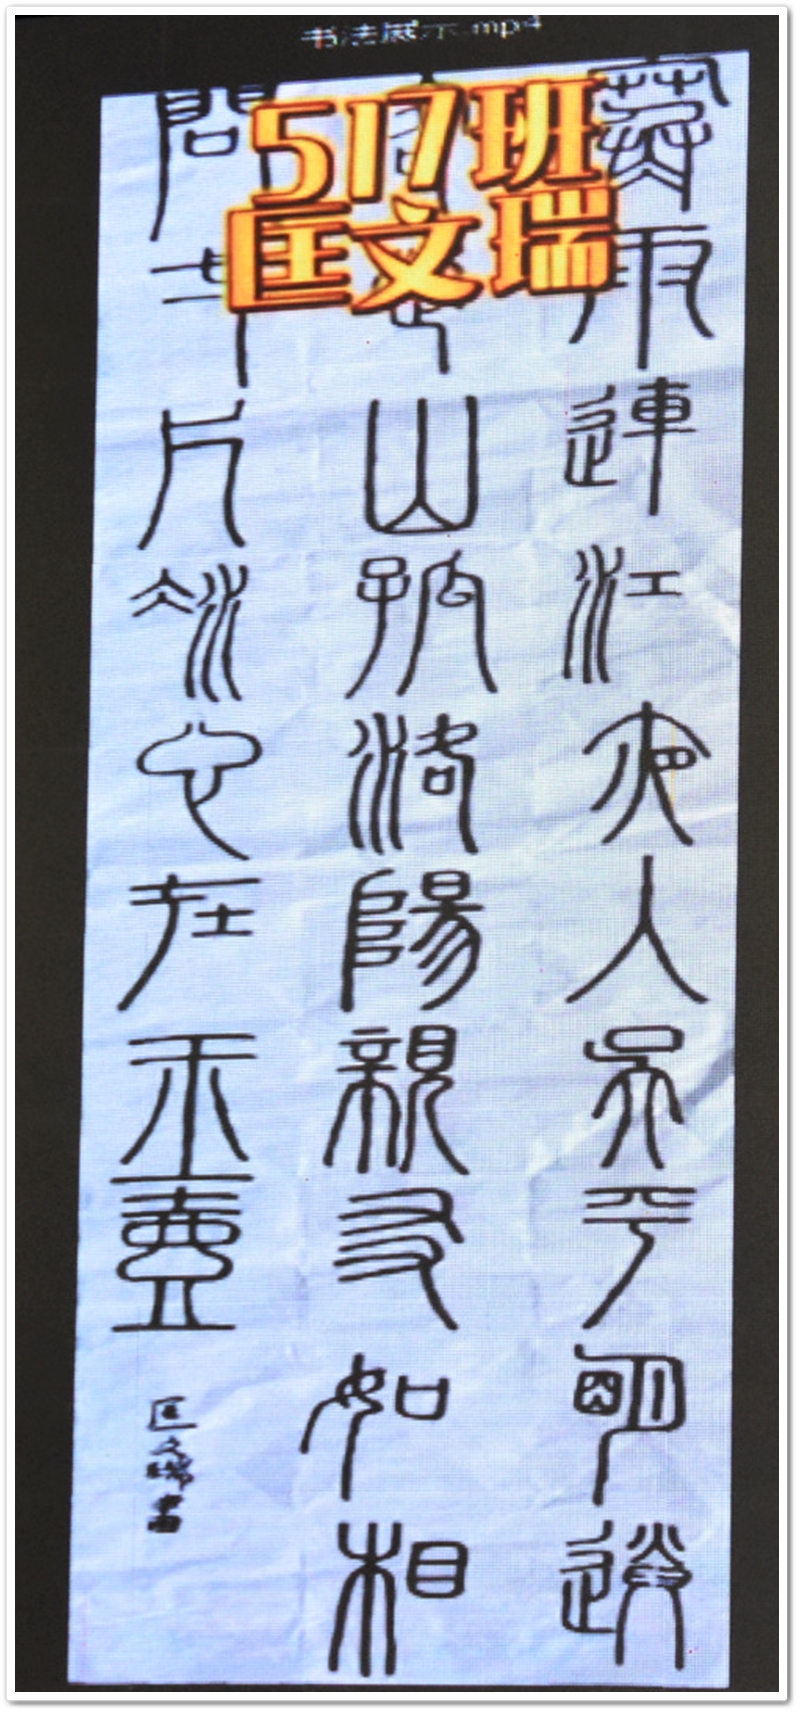 书法展示.mp4
517班
匡文瑞
寒雨連江夜入吳平明送
山孤洛陽親友如相
問一片冰心在玉壺
匡文瑞書